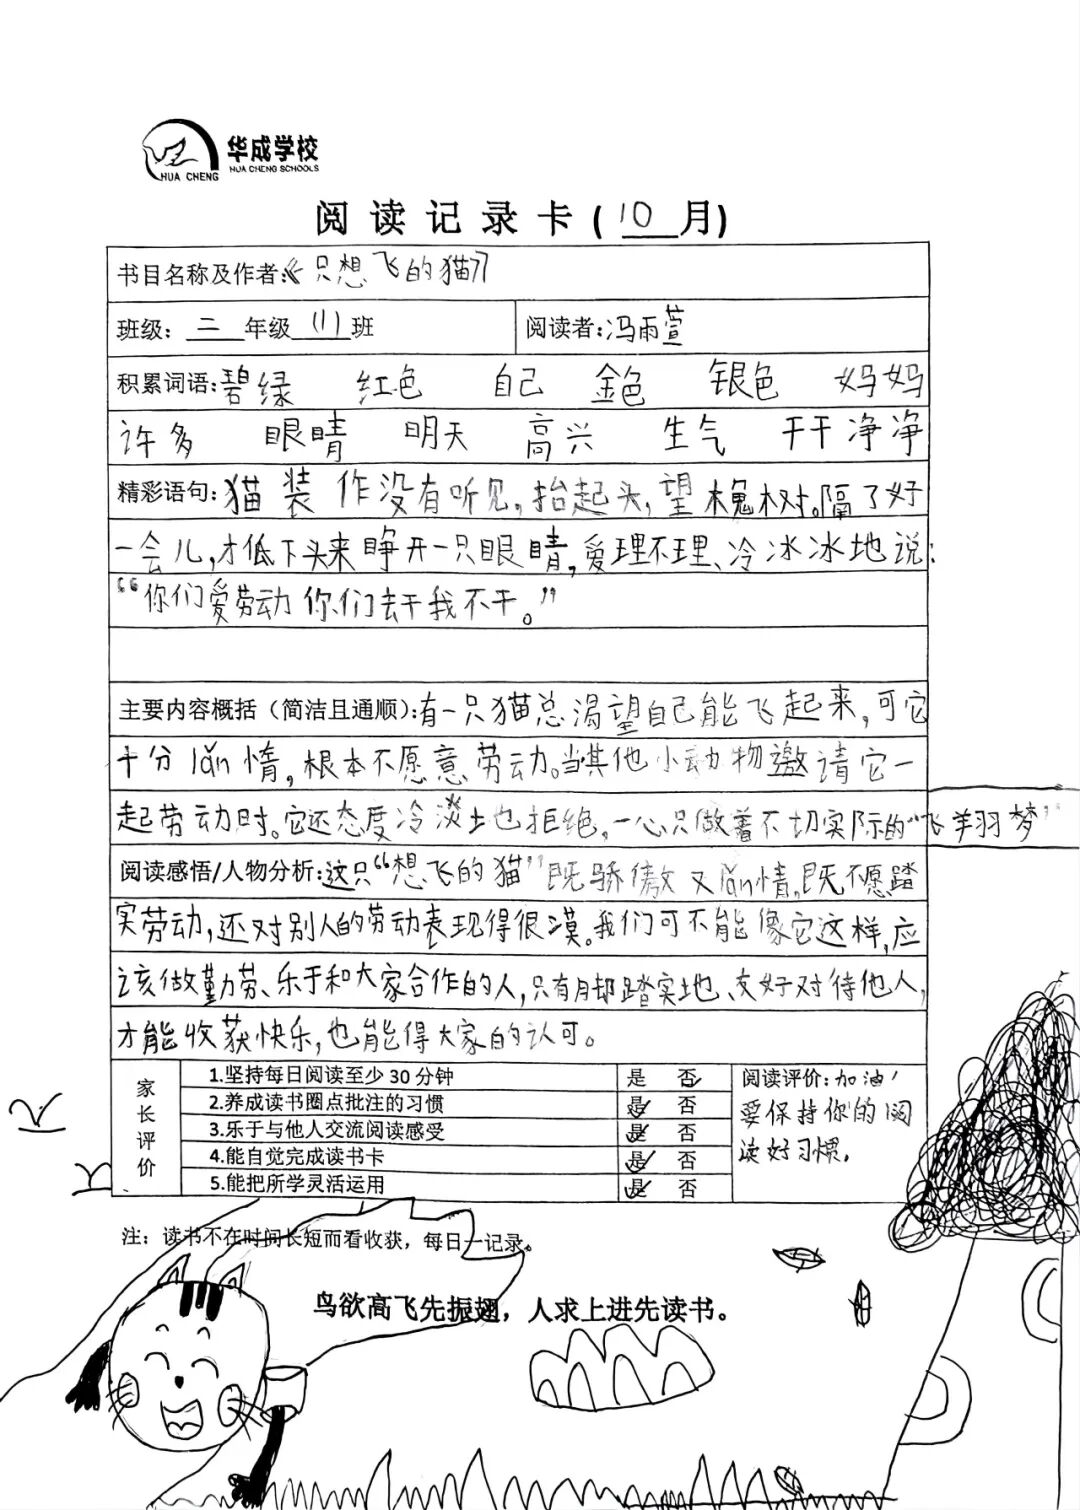 华成学校
HUA CHENG SCHOOLS
HUA CHENG
阅读记录卡(10月)
书目名称及作者:《只想飞的猫》
班级:二年级(1)班 阅读者:冯雨萱
积累词语:碧绿 红色 自己 金色 银色 妈妈
许多 眼睛 明天 高兴 生气 干干净净
精彩语句:猫装作没有听见,抬起头,望槐树。隔了好
一会儿,才低下头来睁开一只眼睛,爱理不理、冷冰冰地说:
“你们爱劳动你们去干我不干。”
主要内容概括(简洁且通顺):有一只猫总渴望自己能飞起来,可它
十分lǎn惰,根本不愿意劳动。当其他小动物邀请它一
起劳动时。它还态度冷淡土也拒绝,一心只做着不切实际的“飞羊羽梦”
阅读感悟/人物分析:这只“想飞的猫”既骄傲又lǎn惰,既不愿踏
实劳动,还对别人的劳动表现得很漠。我们可不能像它这样,应
该做勤劳、乐于和大家合作的人,只有脚踏实地、友好对待他人,
才能收获快乐,也能得大家的认可。
家长评价
1.坚持每日阅读至少30分钟 是 否
2.养成读书圈点批注的习惯 是 否
3.乐于与他人交流阅读感受 是 否
4.能自觉完成读书卡 是 否
5.能把所学灵活运用 是 否
阅读评价:加油!
要保持你的阅
读好习惯。
注:读书不在时间长短而看收获,每日一记录。
鸟欲高飞先振翅,人求上进先读书。